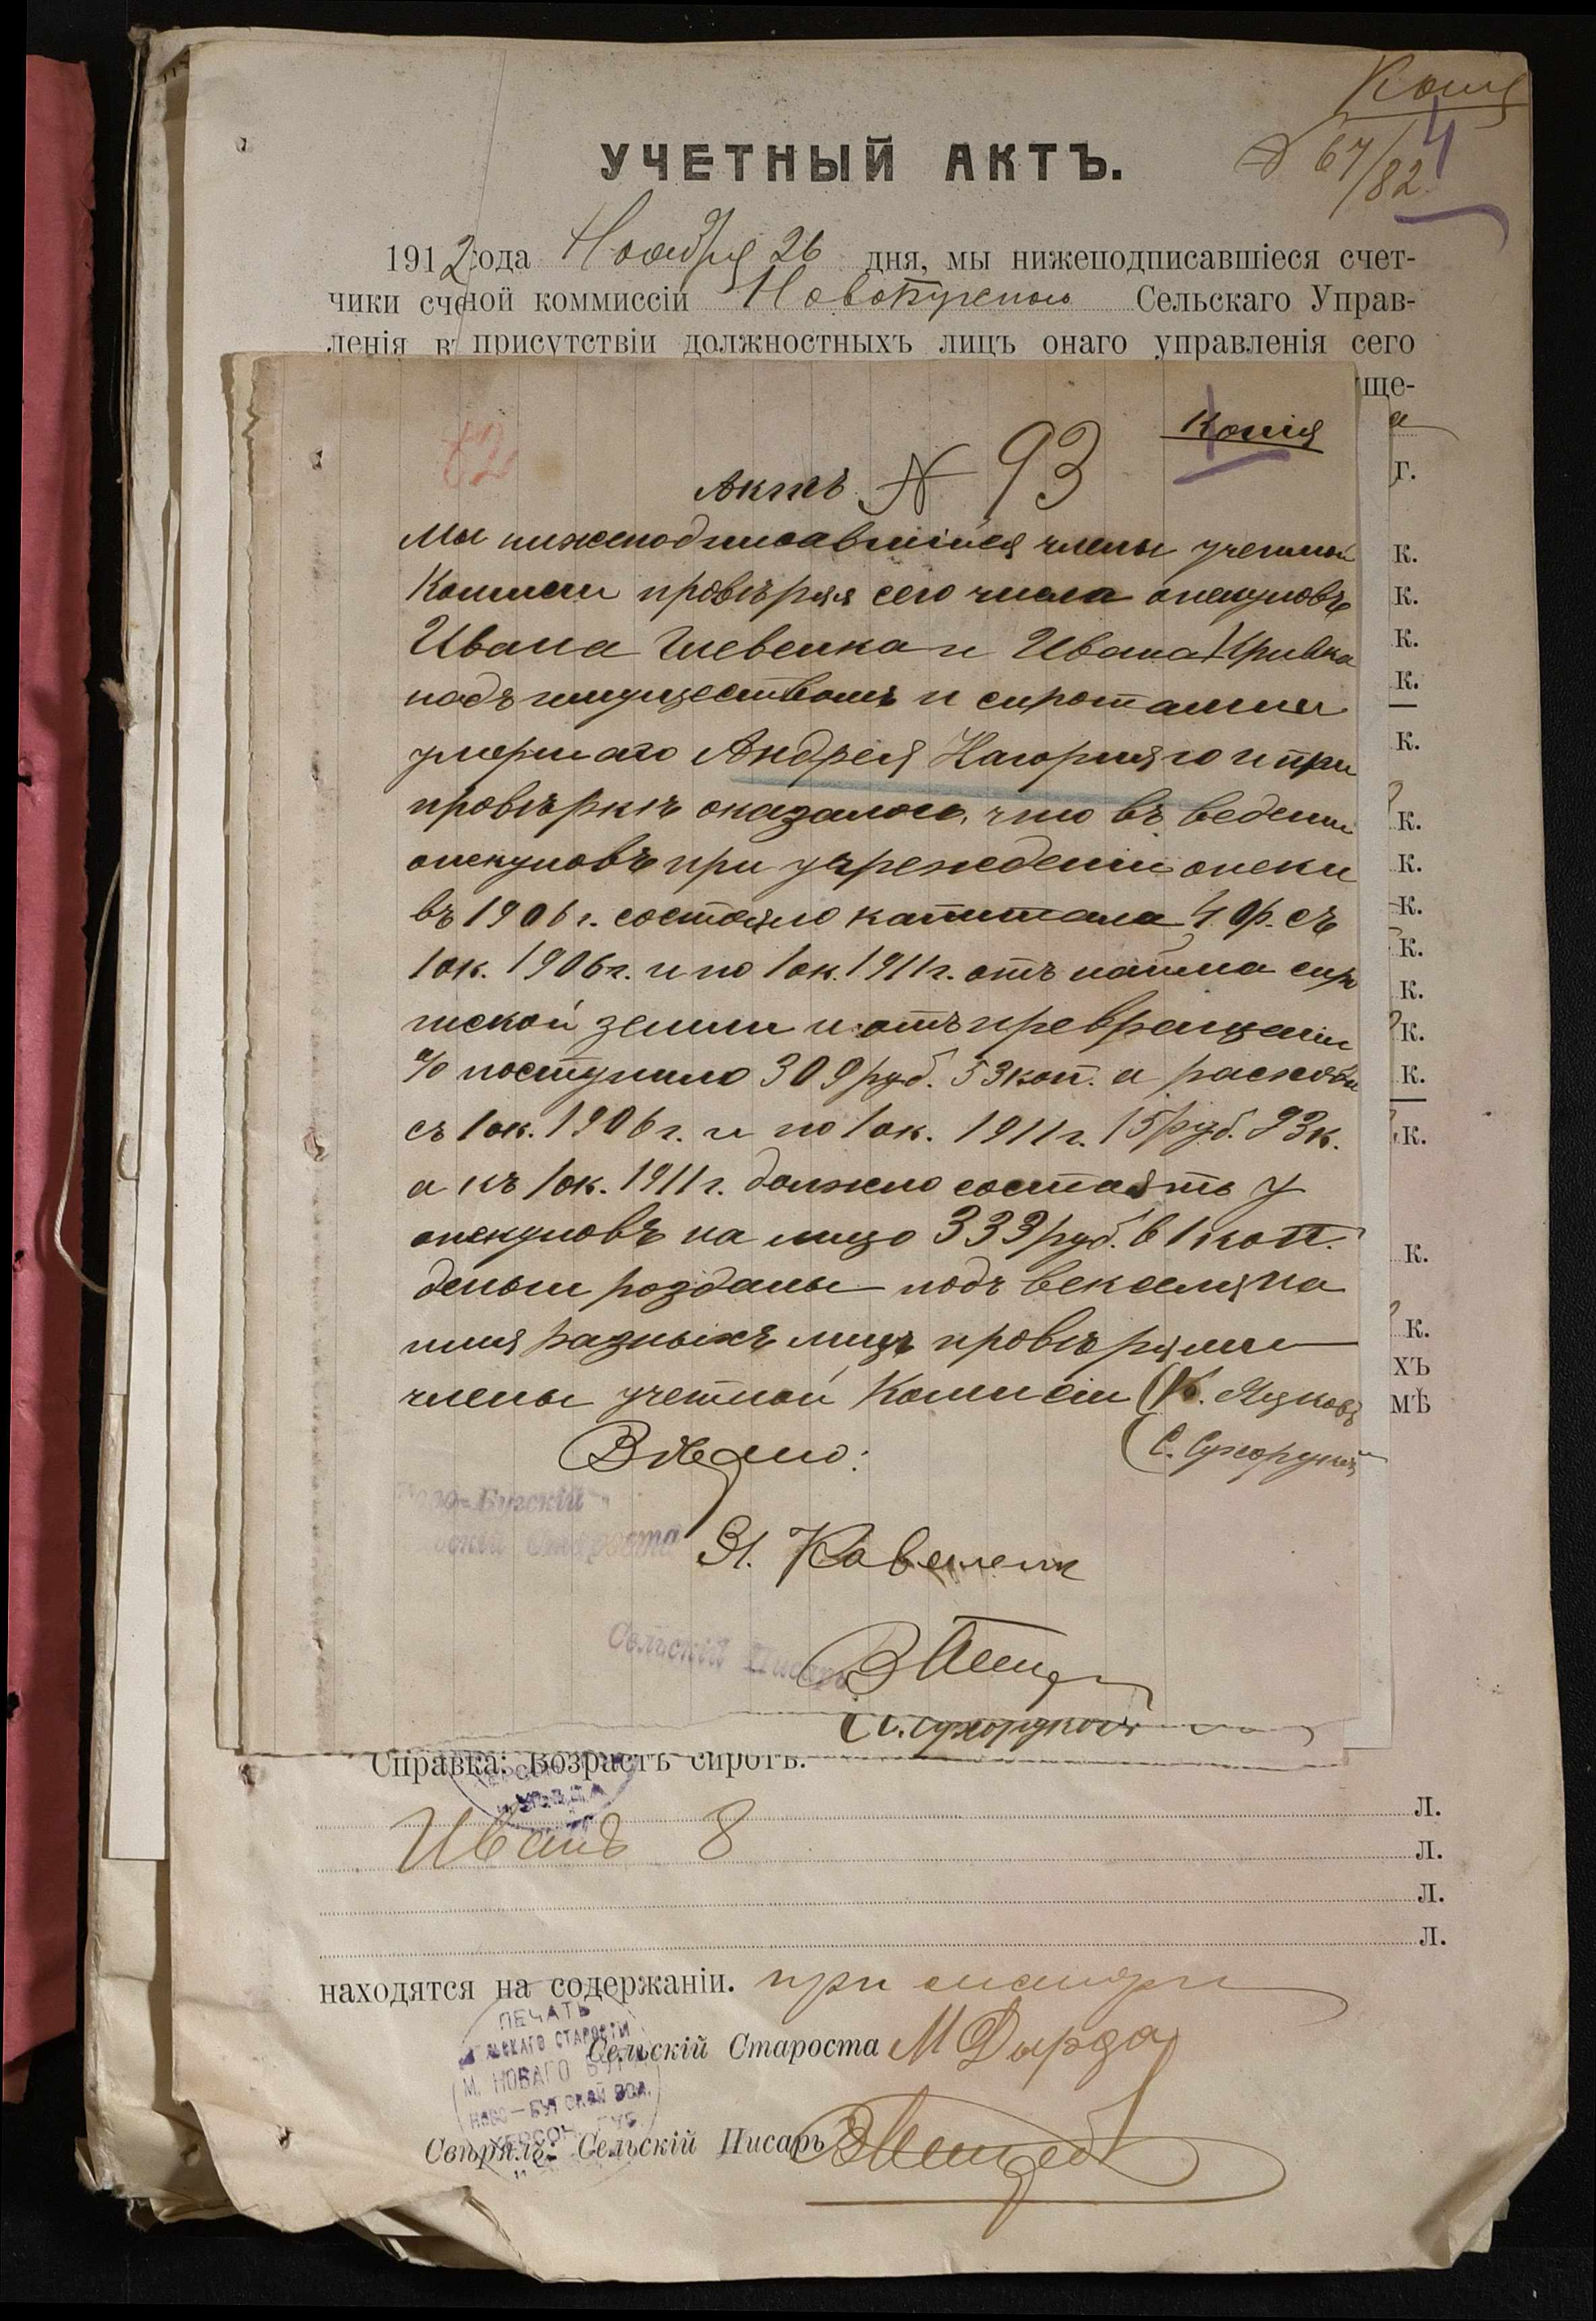 Копія
№ 67/82
4
УЧЕТНЫЙ АКТЪ.
1912 года Ноября 26 дня, мы нижеподписавшіеся счет-
чики счетной коммиссіи Сельскаго Управ-
ленія въ присутствіи должностныхъ лицъ онаго управленія сего
ще-
а
г.
82
Копія
Актъ № 93
Мы нижеподписавшіися члены учетной
Комисіи провѣряя сего числа опекуновъ
Ивана Шевенка и Ивана Кривка
надъ имуществомъ и сиротами
умершаго Андрея Нагорняго и при
провѣркѣ оказалось, что въ ведении
опекуновъ при учрежденіи опеки
въ 1906 г. состояло капитала 40 р. съ
1 ок. 1906 г. и по 1 ок. 1911 г. отъ найма сиро
тской земли и отъ превращенія
% поступило 309 руб. 53 коп. а расходы
съ 1 ок. 1906 г. и по 1 ок. 1911 г. 15 руб. 93 к.
а къ 1 ок. 1911 г. должно состаять у
опекуновъ на лицо 333 руб. 61 коп.
деньги розданы подъ векселя на
имя разныхъ лицъ провѣряли
члены учетной Комисіи (К. Язковъ
(С. Сухорукій
Вѣрно:
Ново-Бугскій
Сельскій Староста
Сельскій Писарь
С. Сухорукой
к.
к.
к.
к.
к.
к.
к.
к.
к.
к.
к.
к.
к.
к.
к.
хъ
мѣ
Справка: Возрастъ сиротъ.
л.
Иванъ 8 л.
л.
л.
находятся на содержаніи. при матери
ПЕЧАТЬ
СЕЛЬСКАГО СТАРОСТЫ
М. НОВАГО БУГА
НОВО-БУГСКОЙ ВОЛ.
ХЕРСОН. ГУБ.
Сельскій Староста М Дырда
Свѣрялъ: Сельскій Писарь